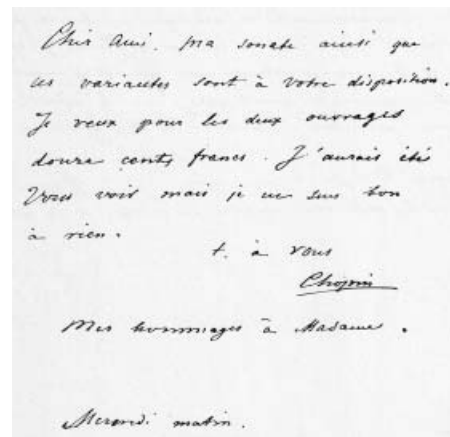 Cher ami. Ma sonate ainsi que
les variantes sont à votre disposition.
Je veux pour les deux ouvrages
douze cents francs. J'aurais été
Vous voir mais je ne suis bon
à rien.
t. à vous
Chopin
Mes hommages à Madame.
Mercredi matin.